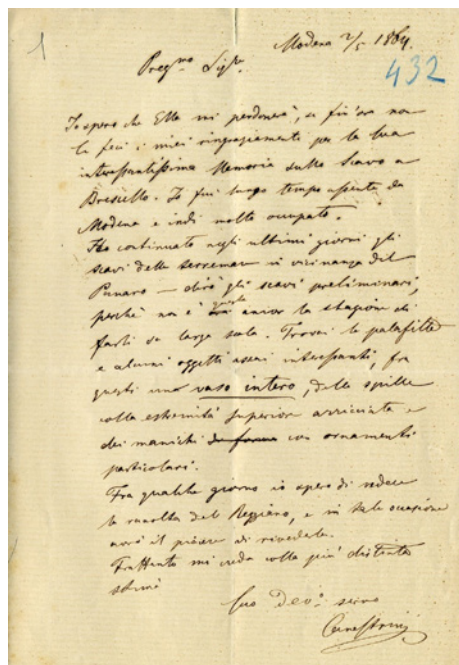 1
Modena 2/5 1864.
432
Preg.mo Sigr.
Io spero che Ella mi perdonerà, se fin'ora non
le feci i miei ringraziamenti per la sua
interessantissima Memoria sullo Scavo a
Brescello. Io fui lungo tempo assente da
Modena e indi molto occupato.
Ho continuato negli ultimi giorni gli
scavi delle terremare in vicinanza del
Panaro — dirò gli scavi preliminari,
perchè non è questa ancor la stagione di
farli su larga scala. Trovai le palafitte
e alcuni oggetti assai interessanti, fra
questi un vaso intero, delle spille
colla estremità superiore arricciata e
dei manichi di forma con ornamenti
particolari.
Fra qualche giorno io spero di vedere
la raccolta del Reggiano, e in tale occasione
avrò il piacere di rivederla.
Frattanto mi creda colla più distinta
stima
Suo Dev.o servo
Canestrini